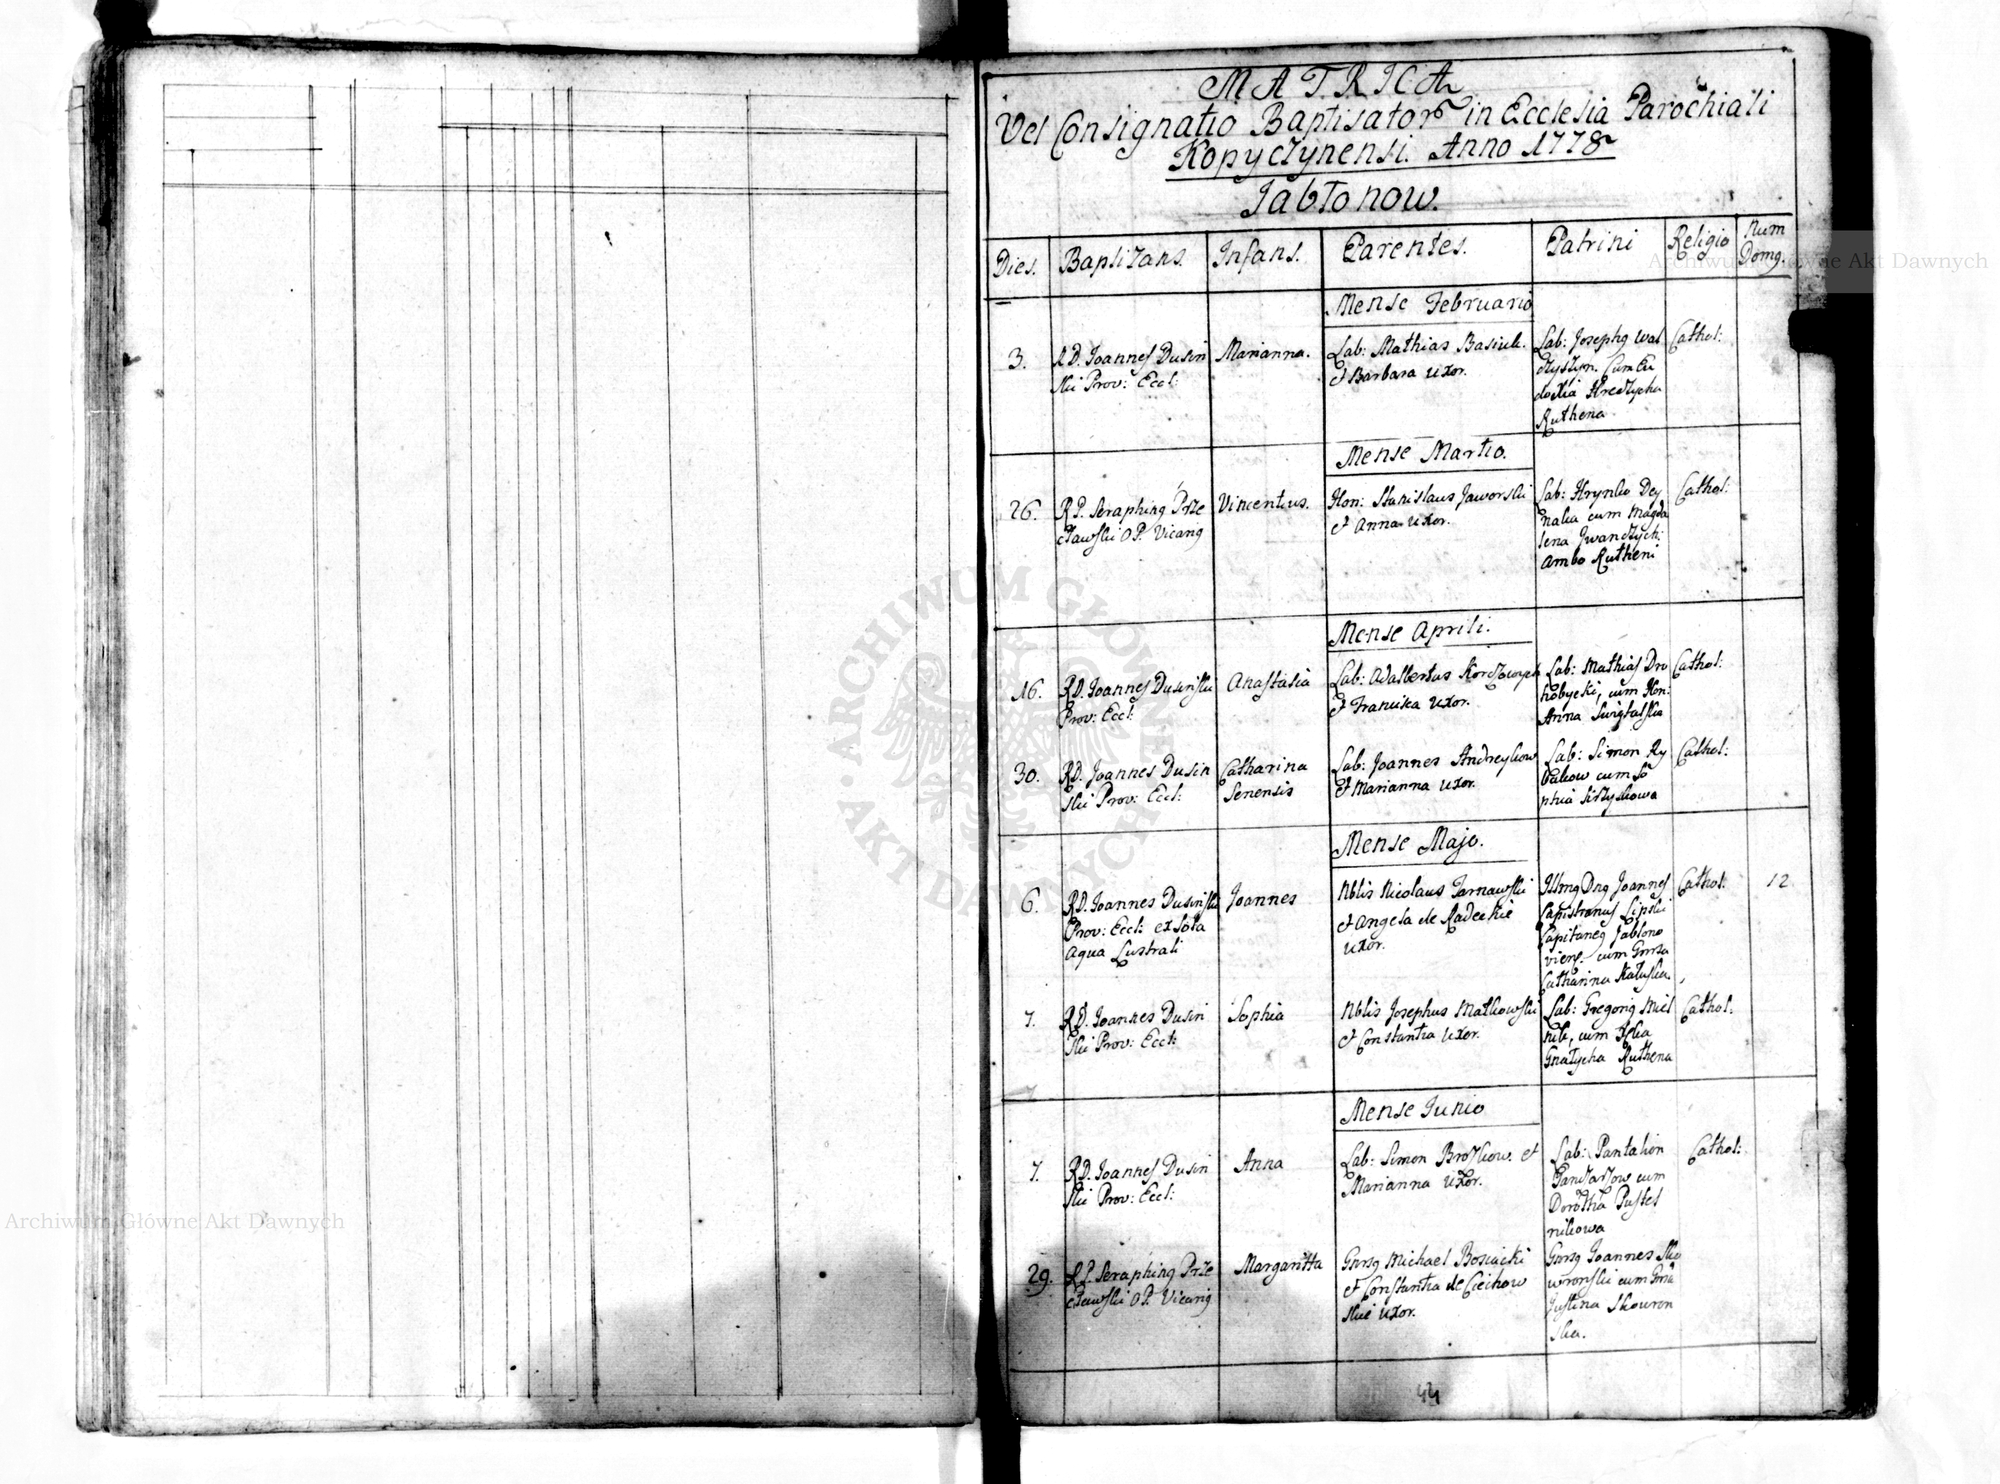 MATRICA
Vel Consignatio Baptisator in Ecclesia Parochiali
Kopyczynensi. Anno 1778
Jabłonow.
Dies. Baptizans. Infans. Parentes. Patrini Religio Num
Domg.
Mense Februario
3. RD. Joannes Dusin
ski Prov: Eccl:
Marianna.
Lab: Mathias Basiuk.
et Barbara uxor.
Lab: Josephg Wal
czyszyn. Cum Eu
doxia Hredzycha
Ruthena
Cathol:
Mense Martio.
26. R.P. Seraphing Prze
cławski O.P. Vicarig
Vincentius.
Hon: Stanislaus Jaworski
et Anna uxor.
Lab: Hrynko Dey
naka cum Magda
lena Iwanczych:
Ambo Rutheni
Cathol:
Mense Aprili.
16. RD. Joannes Dusinski
Prov: Eccl:
Anastasia
Lab: Adalbertus
et Francisca uxor.
Lab: Mathias Dro
hobycki, cum Hon:
Anna
Cathol:
30. RD. Joannes Dusin
ski Prov: Eccl:
Catharina
Senensis
Lab: Joannes Andreykow
et Marianna uxor.
Lab: Simon Ry
bakow cum So
phia
Cathol:
Mense Majo.
6. RD. Joannes Dusinski
Prov: Eccl: ex sola
Aqua Lustrali
Joannes
Nblis Nicolaus Tarnawski
et Angela de Radeckie
uxor.
Illmg Dng Joannes
Capistranus Lipski
Capitaneg Jablono
viens. cum Gnrsa
Catharina Kałuska.
Cathol:
12
7. RD. Joannes Dusin
ski Prov: Eccl:
Sophia
Nblis Josephus Matkowski
et Constantia uxor.
Lab: Gregorig Miel
nik, cum
Gnatycha Ruthena
Cathol:
Mense Junio
7. RD. Joannes Dusin
ski Prov: Eccl:
Anna
Lab: Simon Brozkow. et
Marianna uxor.
Lab: Pantalion
cum
Dorotha Pustel
nikowa
Cathol:
29. R.P. Seraphing Prze
cławski O.P. Vicarig
Margaritta
Gnrsg Michael Bosiacki
et Constantia de Ciechow
skie uxor.
Gnrsg Joannes Sko
wronski cum Gnrsa
Justina Skowron
ska.
44
Archiwum Główne Akt Dawnych
Archiwum Główne Akt Dawnych
ARCHIWUM GŁÓWNE
AKT DAWNYCH